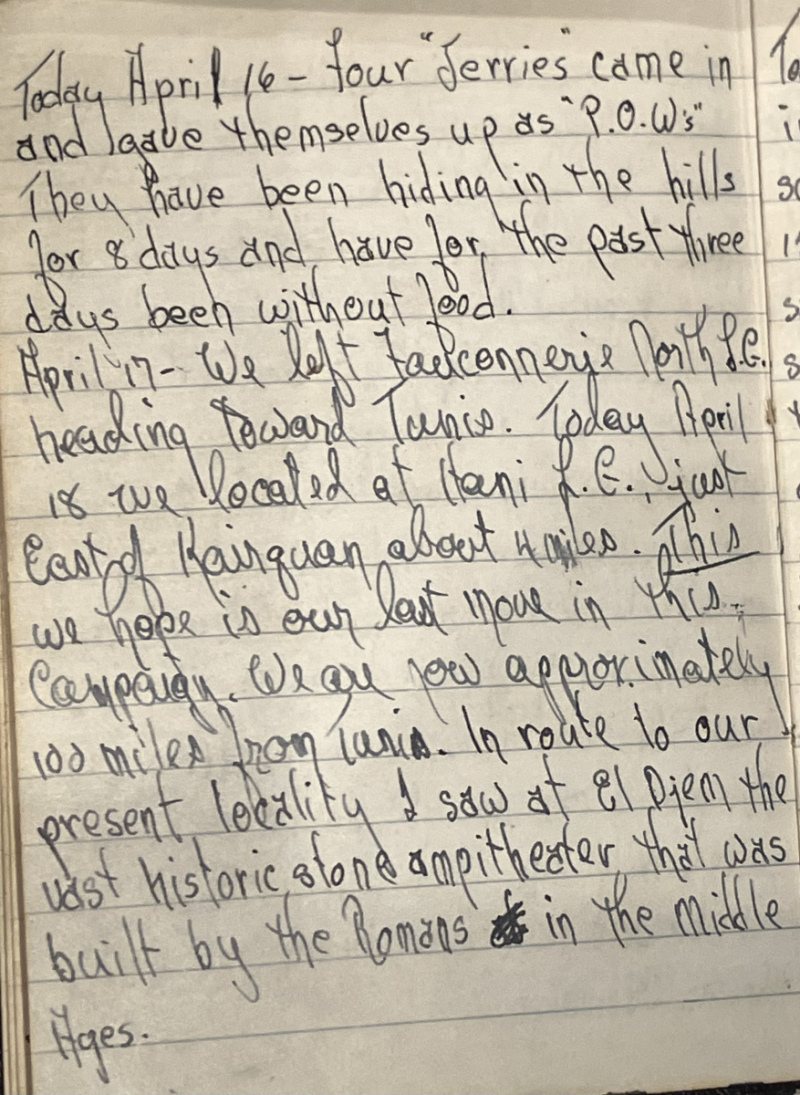 Today April 16 - Four "Jerries" came in
and gave themselves up as "P.O.W's"
They have been hiding in the hills
for 8 days and have for the past three
days been without food.
April 17 - We left Faeconnerie North L.G.
heading toward Tunis. Today April
18 we located at Hani L.G., just
East of Kairquan about 4 miles. This
we hope is our last move in this
Campaign. We are now approximately
100 miles from Tunis. In route to our
present locality I saw at El Djem the
vast historic stone ampitheater that was
built by the Romans in the Middle
Ages.
To
i
so
s
s